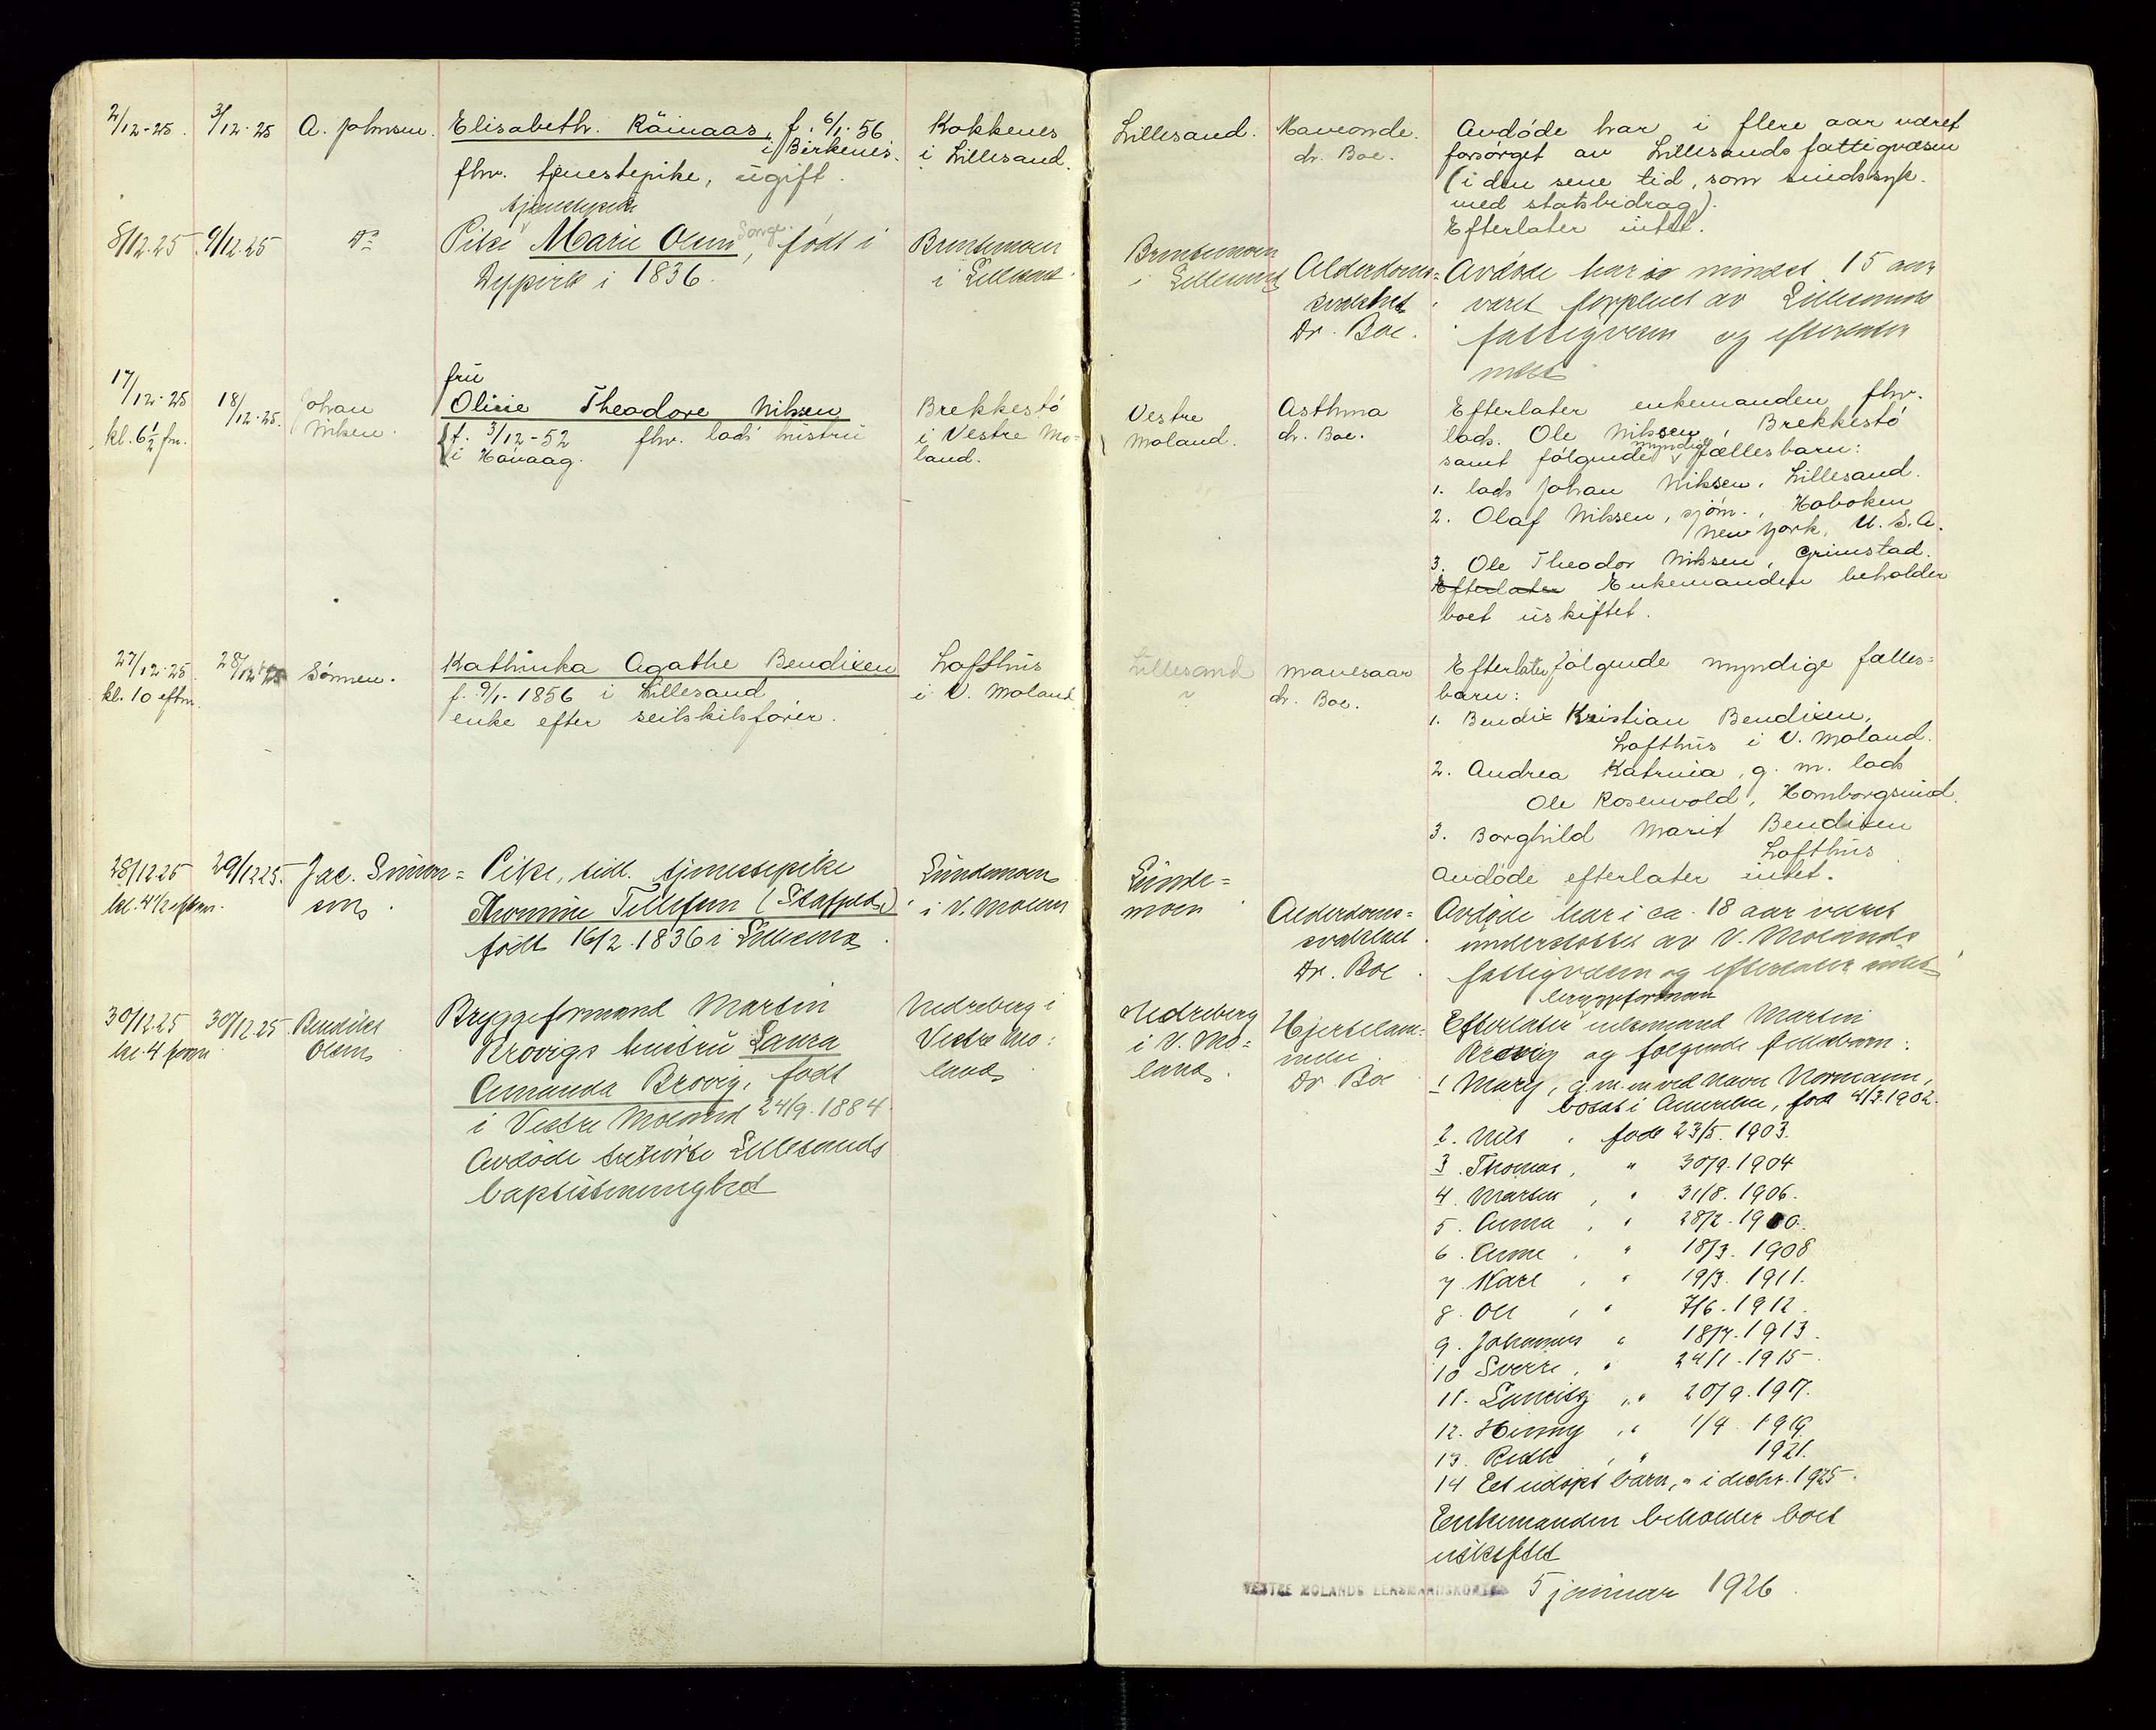 2/12-25. 3/12-25 A. Johnsen. Elisabeth. Råinaas, f. 6/1-56 Kokkenes Lillesand. dr. Boe. Avdøde har i flere aar været
i Birkenes. i Lillesand. forsørget av Lillesands fattigvæsen
fhv. tjenestepike, ugift. (i den sene tid, som sindssyk
med statsbidrag).
Efterlater intet.
tjenestepike
8/12.25 9/12.25 Do Pike Marie Olsen, født i
Dypvik i 1836.
i Lillesand
i Lillesand
Alderdoms=
svakhet
Dr. Boe.
Avdøde har i mindst 15 aar
været forpleiet av Lillesands
fattigvæsen og efterlater
intet
17/12-25
kl. 6½ fm.
18/12-25.
Johan
Nilsen.
fru
Oline Theodore Nilsen
f. 3/12-52 fhv. lods hustru
i Høvaag.
Brekkestø
i Vestre Mo=
land.
Vestre
Moland.
Asthma
dr. Boe.
Efterlater enkemanden fhv.
lods. Ole Nilsen, Brekkestø
samt følgende myndige fællesbarn:
1. lods Johan Nilsen, Lillesand.
2. Olaf Nilsen, sjøm., Hoboken
New York, U.S.A.
3. Ole Theodor Nilsen, Grimstad.
Efterlater Enkemanden beholder
boet uskiftet.
27/12-25
kl. 10 eftm.
28/12-25
Sønnen.
Kathinka Agathe Bendixen
f. 9/1-1856 i Lillesand
enke efter seilskibsfører.
Lofthus
i V. Moland
Lillesand
Mavesaar
dr. Boe.
Efterlater følgende myndige fælles=
barn:
1. Bendix Kristian Bendixen,
Lofthus i V. Moland.
2. Andrea Katrina, g. m. lods
Ole Rosenvold, Homborgsund.
3. Borghild Marit Bendixen
Lofthus
Avdøde efterlater intet.
28/12 25
kl. 4½ eftm.
29/12 25.
Jac. Simon=
sens
Pike, tidl. tjenestepike
Thomine Tellefsen
født 16/2.1836 i Lillesand
Lundemoen
i V. Moland
Lunde=
moen
Alderdoms=
svakhet.
Dr. Boe
Avdøde har i ca. 18 aar været
understøttet av V. Molands
fattigvæsen og efterlater intet
30/12.25
kl. 4 form
30/12.25
Bendiks
Olsen
Bryggeformand Martin
Brovigs hustru Laura
Amanda Brovig, født
i Vestre Moland 24/9.1884
Avdøde tilhørte Lillesands
baptistmenighet
Nedreberg i
Vestre Mo=
land
Nedreberg
i V. Mo=
land.
Hjertelam=
melse
Dr Boe
bryggeformann
Efterlater enkemand Martin
Brovig og følgende fellesbarn:
1 Mary, g. m. en ved navn Normann,
bosat i Amerika, født 4/3.1902.
2. Nils, født 23/5.1903.
3. Thomas, " 30/9.1904
4. Martin, " 31/8.1906.
5. Anna, " 28/2.1910.
6. Arne, " 18/3.1908
7. Karl, " 19/3.1911.
8. Ole, " 7/6.1912.
9. Johannes " 18/7.1913.
10 Sverre, " 24/1.1915.
11. Lauritz, " 20/9.1917.
12. Henny, " 1/4.1919.
13. " 1921.
14 Et udøpt barn, " i decbr. 1925.
Enkemanden beholder boet
uskiftet
VESTRE MOLANDS LENSMANDSKONTOR 5 januar 1926.